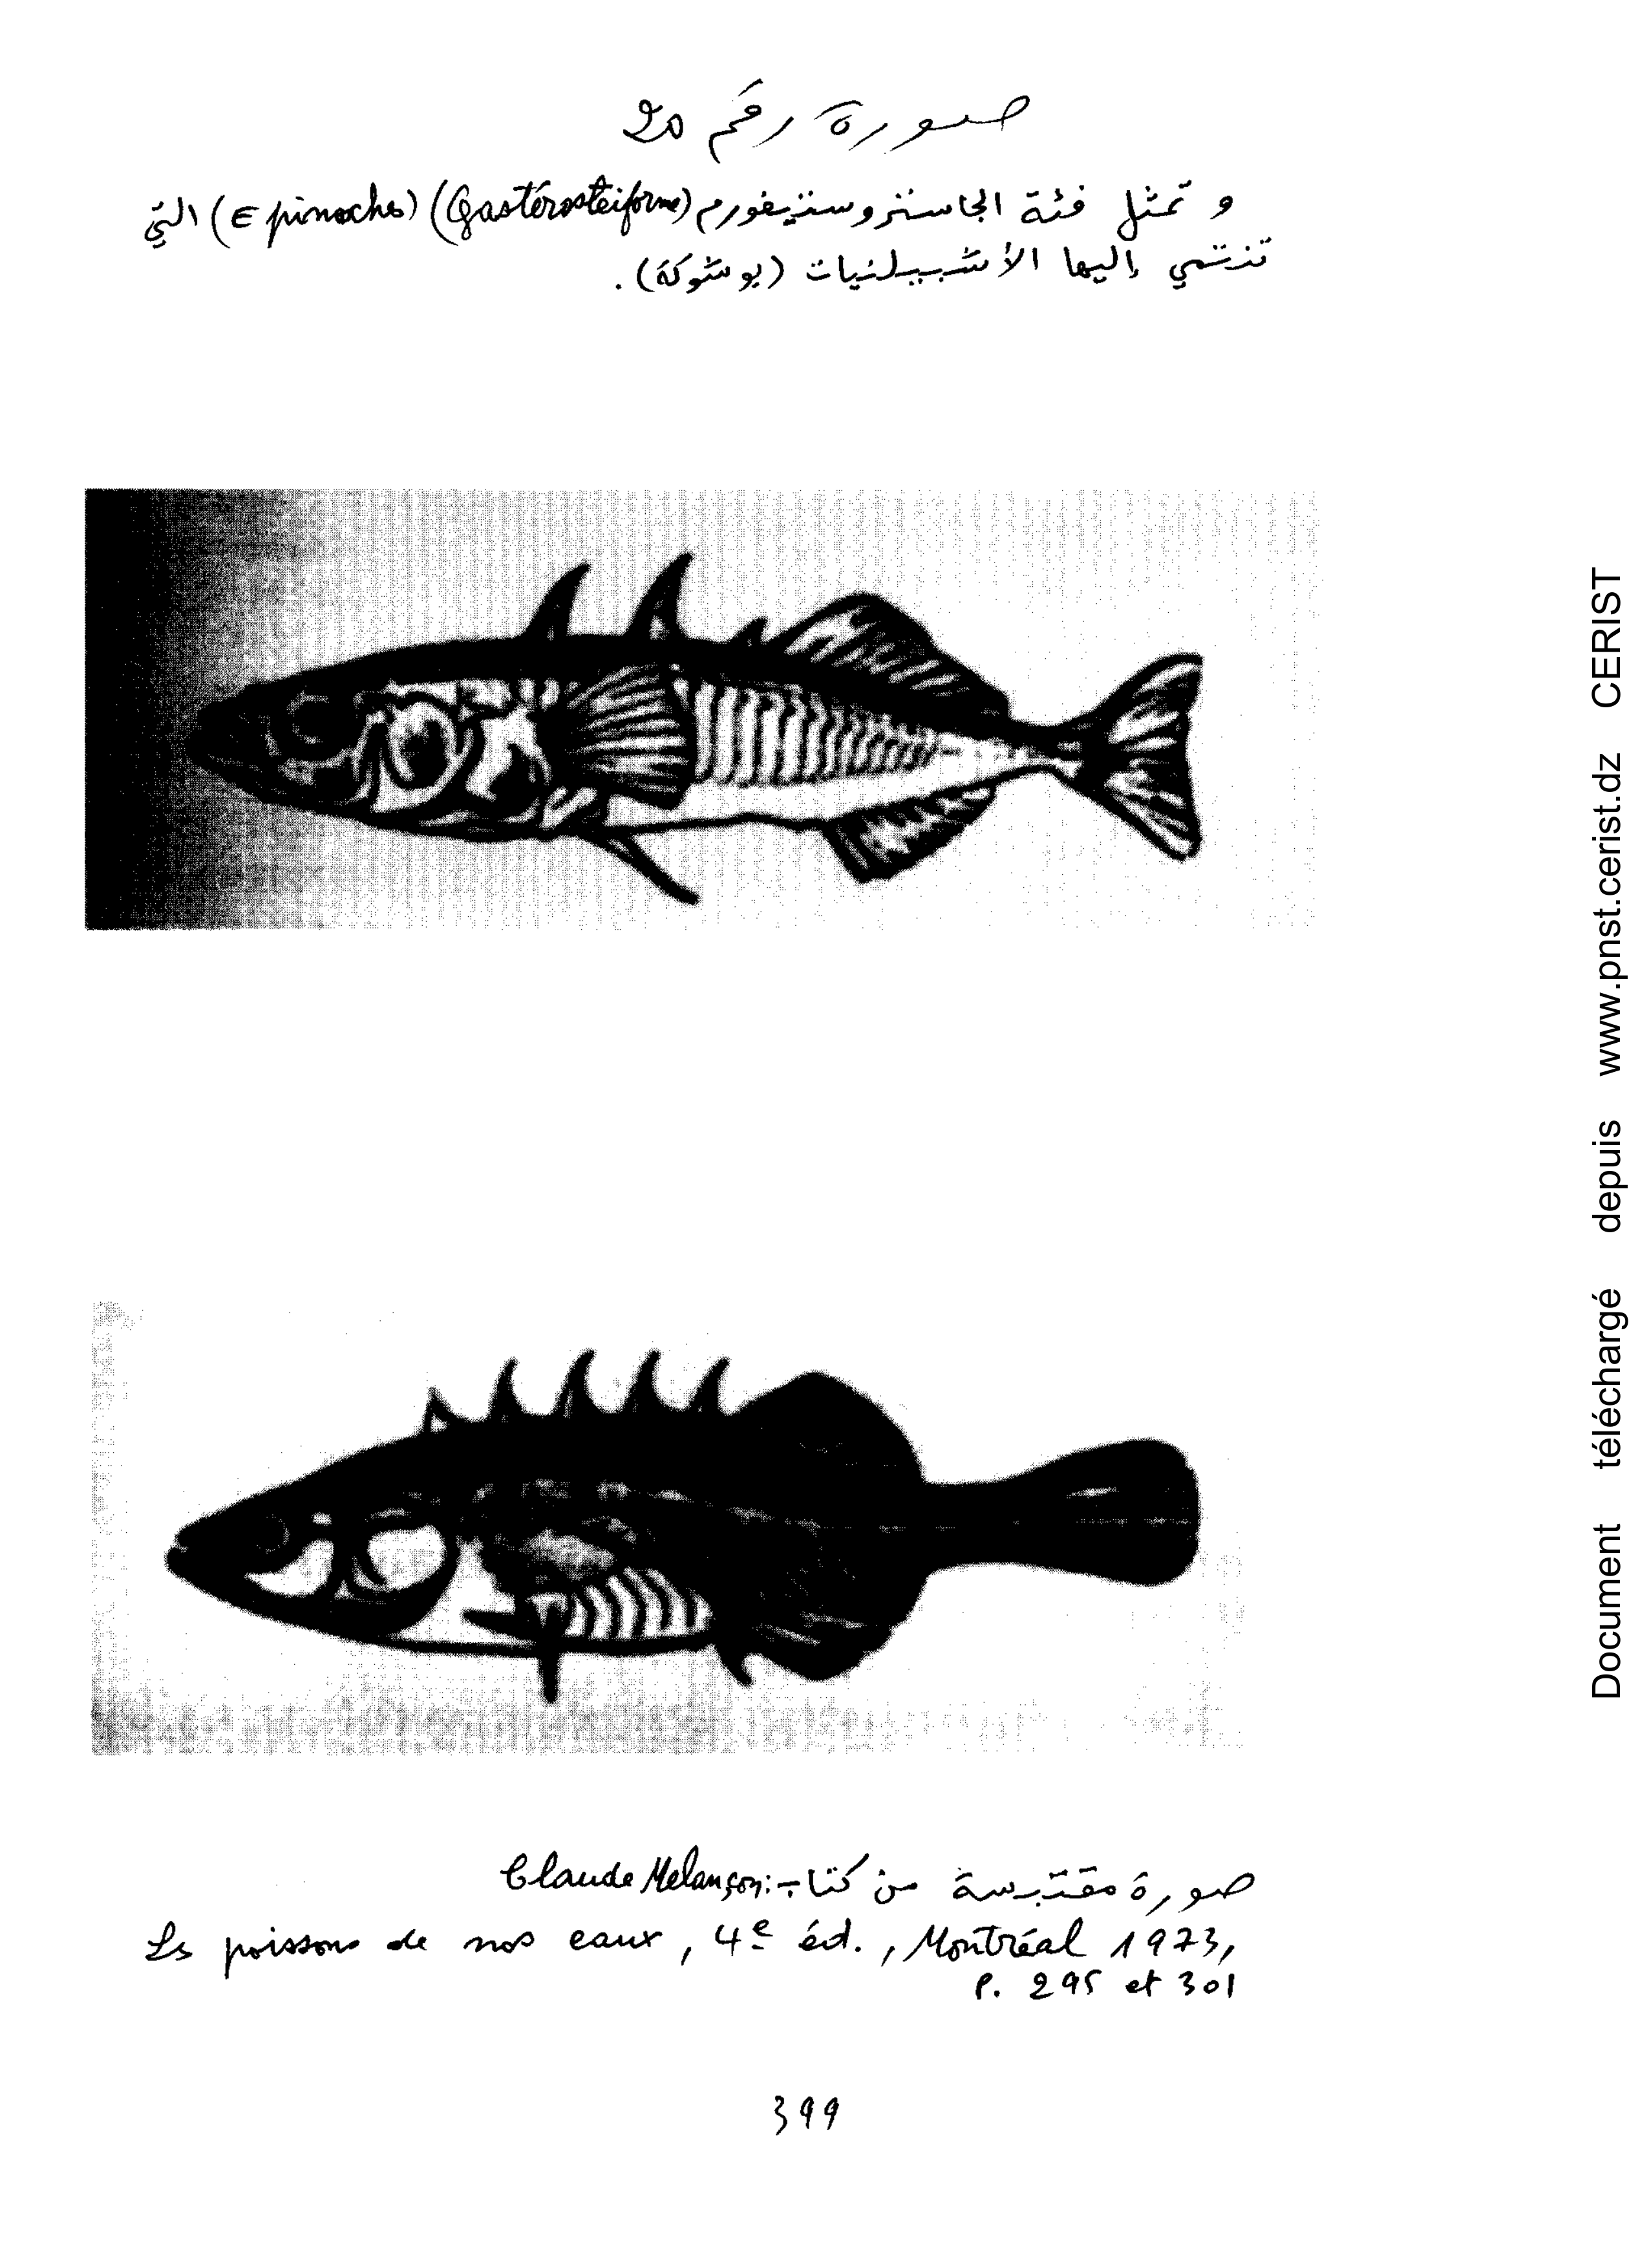 صورة رقم 20
و تمثل فئة الجاستروستيفورم (Gastérostéiforme) (Epinoches) التي
تنتمي إليها الأشبيلنيات (بوشوكة).
صورة مقتبسة من كتاب: Claude Melançon
Les poissons de nos eaux, 4e éd., Montréal 1973,
P. 295 et 301
399
Document téléchargé depuis www.pnst.cerist.dz CERIST